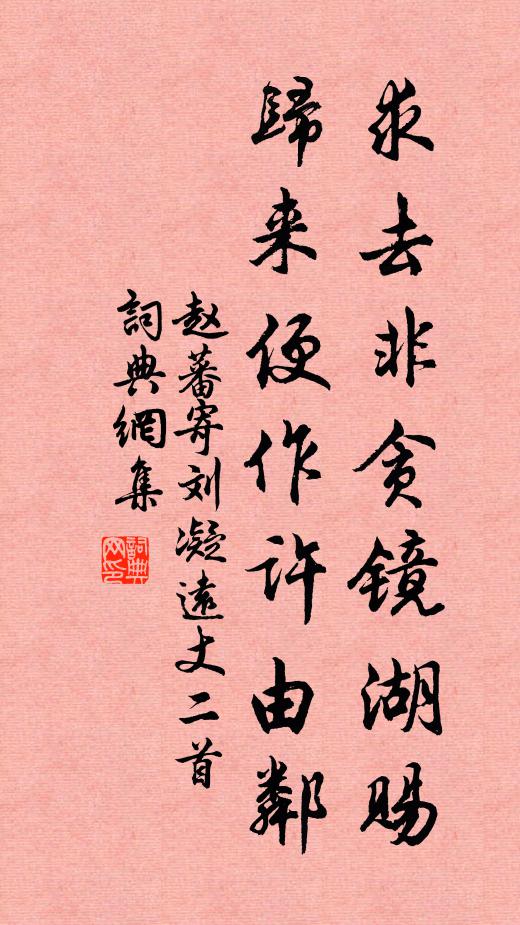 求去非贪鏡湖賜
歸来便作許由鄰
赵蕃寄刘凝遠丈二首
詞典網集
詞典網印